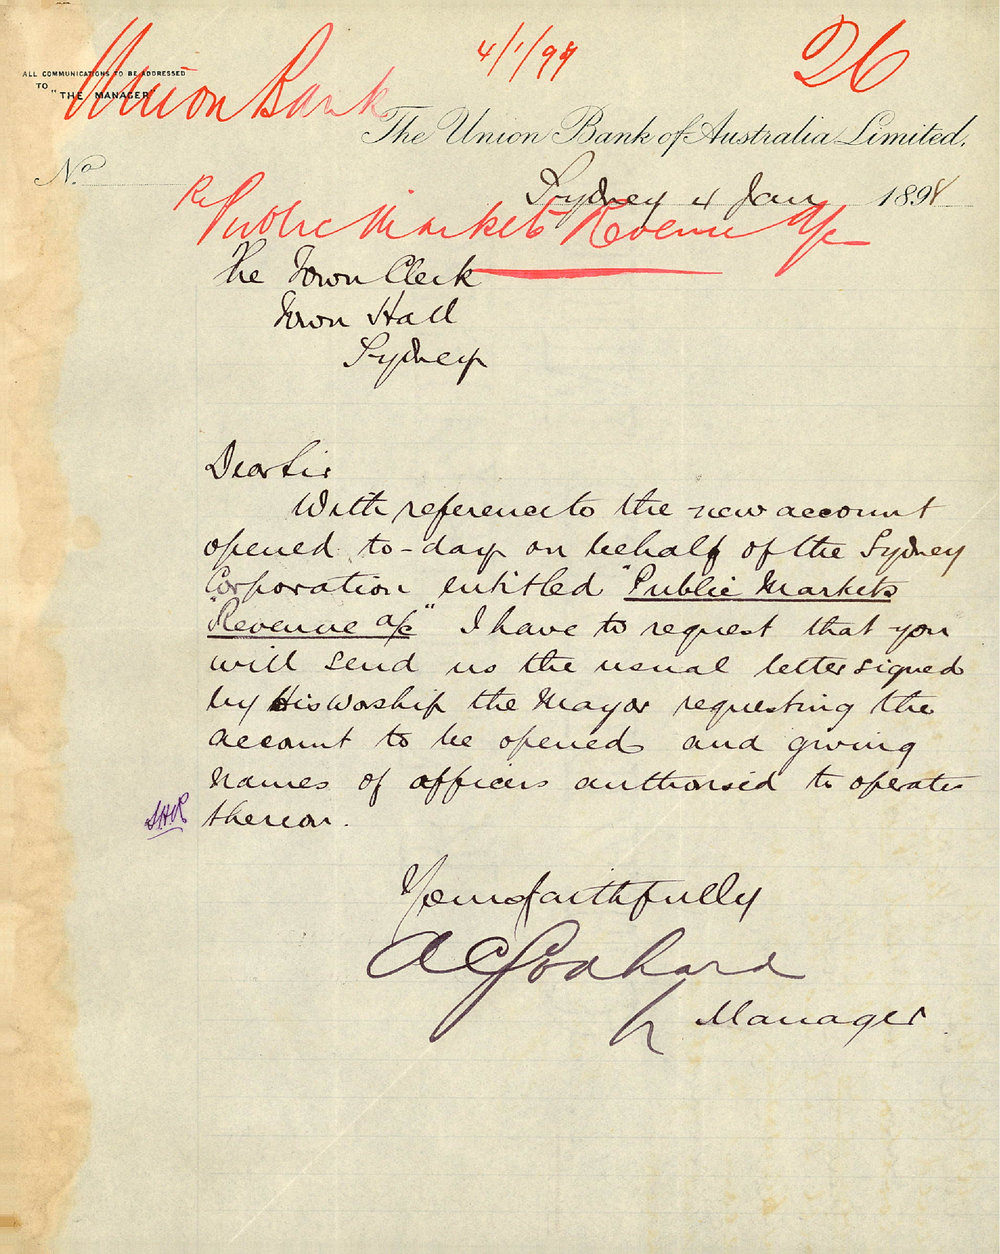 Union Bank
4/1/99
26
ALL COMMUNICATIONS TO BE ADDRESSED
TO
"THE MANAGER"
The Union Bank of Australia Limited.
No
Sydney 4 Jany 189
Re Public Markets Revenue A/c
The Town Clerk
Town Hall
Sydney
Dear Sir
With reference to the new account
opened to-day on behalf of the Sydney
Corporation entitled "Public Markets
"Revenue a/c" I have to request that you
will send us the usual letter signed
by His Worship the Mayor requesting the
account to be opened and giving
names of officers authorised to operate
thereon.
Yours faithfully
A C
Manager